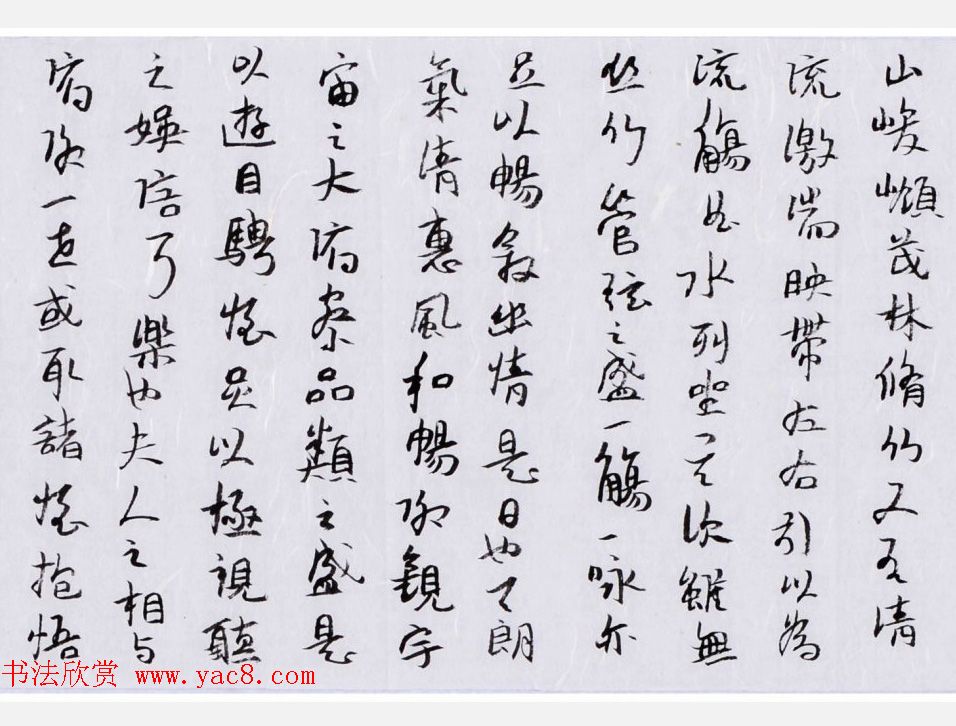 山峻嶺茂林脩竹又有清
流激湍映帶左右引以為
流觴曲水列坐其次雖無
丝竹管弦之盛一觴一詠亦
足以暢敘幽情是日也天朗
氣清惠風和暢仰觀宇
宙之大俯察品類之盛是
以遊目騁懷足以極視聽
之娛信可樂也夫人之相与
俯仰一世或取諸懷抱悟
书法欣赏 www.yac8.com